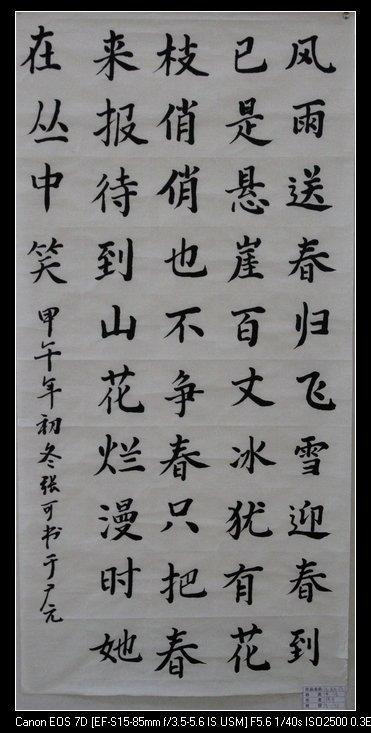 风雨送春归飞雪迎春到
已是悬崖百丈冰犹有花
枝俏俏也不争春只把春
来报待到山花烂漫时她
在丛中笑
甲午年初冬张可书于尹元
Canon EOS 7D [EF-S15-85mm f/3.5-5.6 IS USM] F5.6 1/40s ISO2500 0.3E